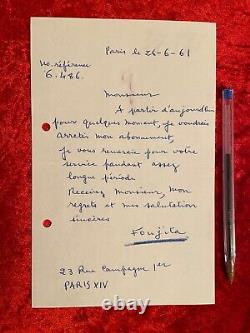 Paris le 26-6-61
Vo. référence
6.486.
Monsieur
A partir d'aujourd'hui
pour quelques moment, je voudrais
arreter mon abonnement,
je vous remercie pour votre
service pendant assez
longue période
Recevez Monsieur, mon
regrets et mes salutation
sincères
Foujita
23 Rue Campagne 1er
PARIS XIV